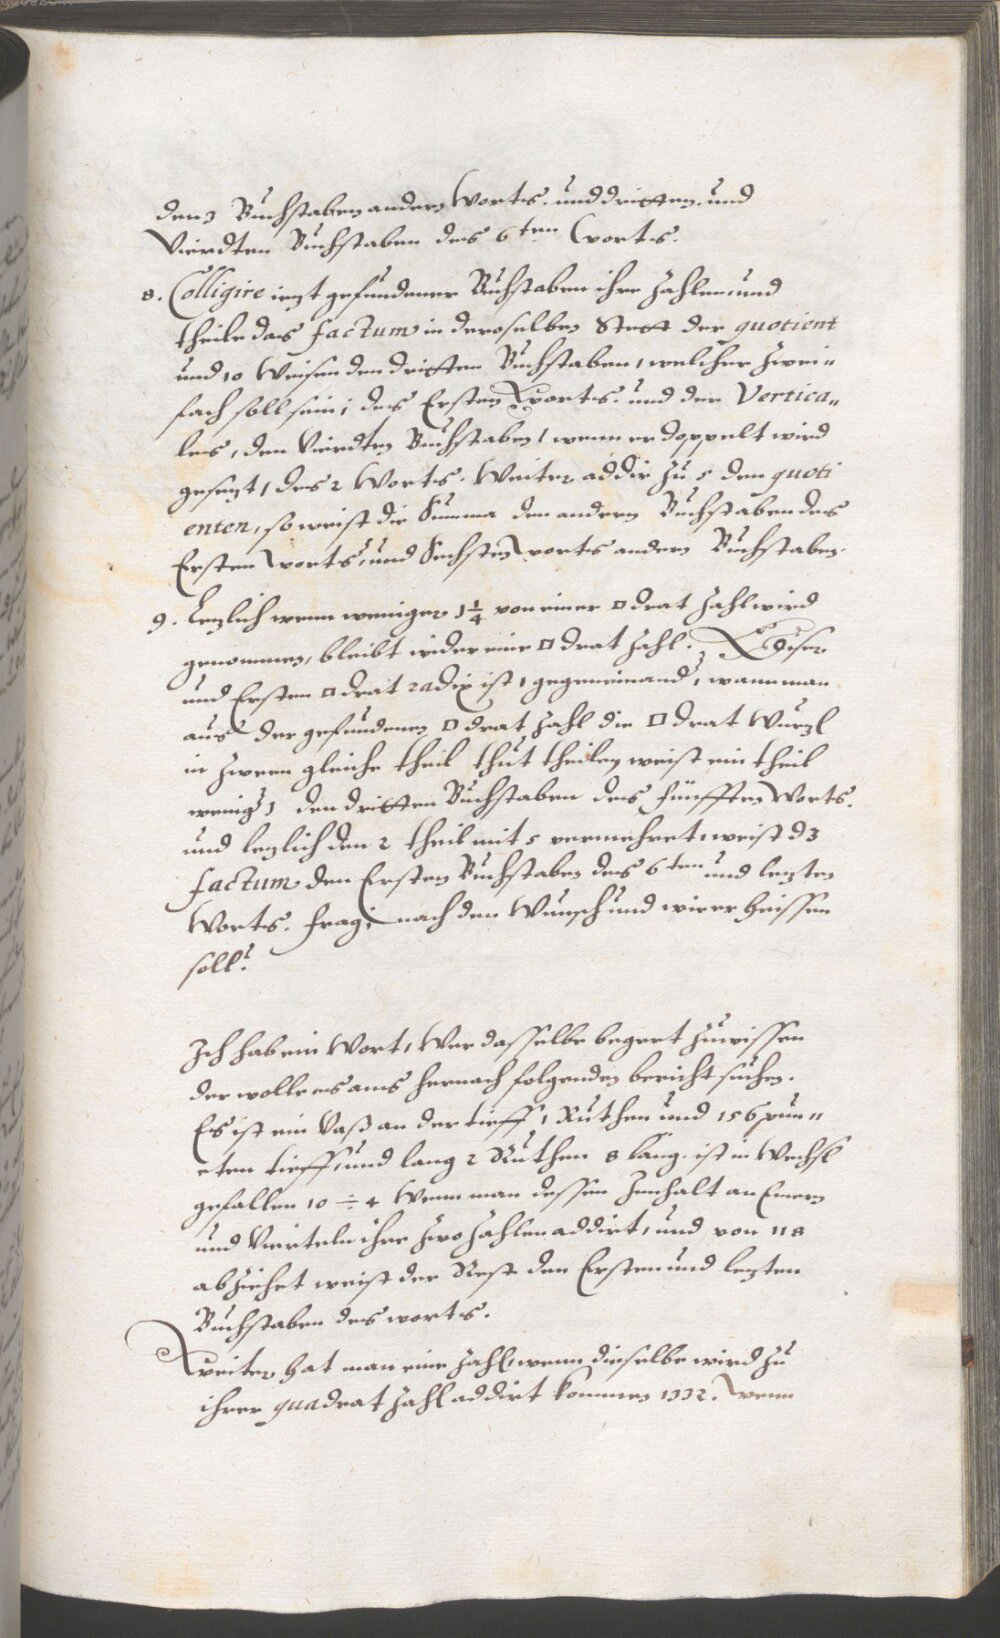 den 3 Buchstaben andern Worts. und dritten. und
Vierdten Buchstaben des 6ten Worts.
8. Colligire iezt gefundener Buchstaben ihre Zahlen und
theile das factum in deroselben Stett der quotient
und 10 Weisen den dritten Buchstaben, welcher Zwei„
fach soll sein; des Ersten Worts. und der Vertica„
les, den Vierdten Buchstaben, wenn er doppelt wird
gesezt, des 2 Worts. Weiter addir zu 5 den quoti
enten, so weist die Summa den andern Buchstaben des
Ersten Worts, und Sechsten Worts andern Buchstaben.
9. Lezlich wenn weniger 1 1/4 von einer □drat Zahl wird
genommen, bleibt wider eine □drat Zahl. Diser
und Ersten □drat radix ist, gegeneinand, wann man
aus der gefundenen □drat Zahl die □drat Wurzl
in Zween gleiche theil thut theilen weist ein theil
wenig 1 den dritten Buchstaben des fünfften Worts.
und lezlich den 2 theil mit 5 vermehret, weist d3
factum den Ersten Buchstaben des 6ten und lezten
Worts. Frag; nach den Wunsch und wie er heissen
soll?
Ich hab ein Wort, Wer dasselbe begert Zuwissen
der wolle es aus hernach folgenden bericht suchen.
Es ist ein Vaß an der tieff 1 Ruthen und 156 pun„
cten tieff, und lang 2 Ruthen 8 lang. ist in Wechsl
gefallen 10 ÷ 4 Wenn man dessen Innhalt an Emern
und Vierteln ihre Zwo Zahlen addirt, und von 118
abziehet weist der Rest den Ersten und lezten
Buchstaben des worts.
Weiter hat man eine Zahl, wenn dieselbe wird Zu
ihrer quadrat Zahl addirt kommen 1332. Wenn